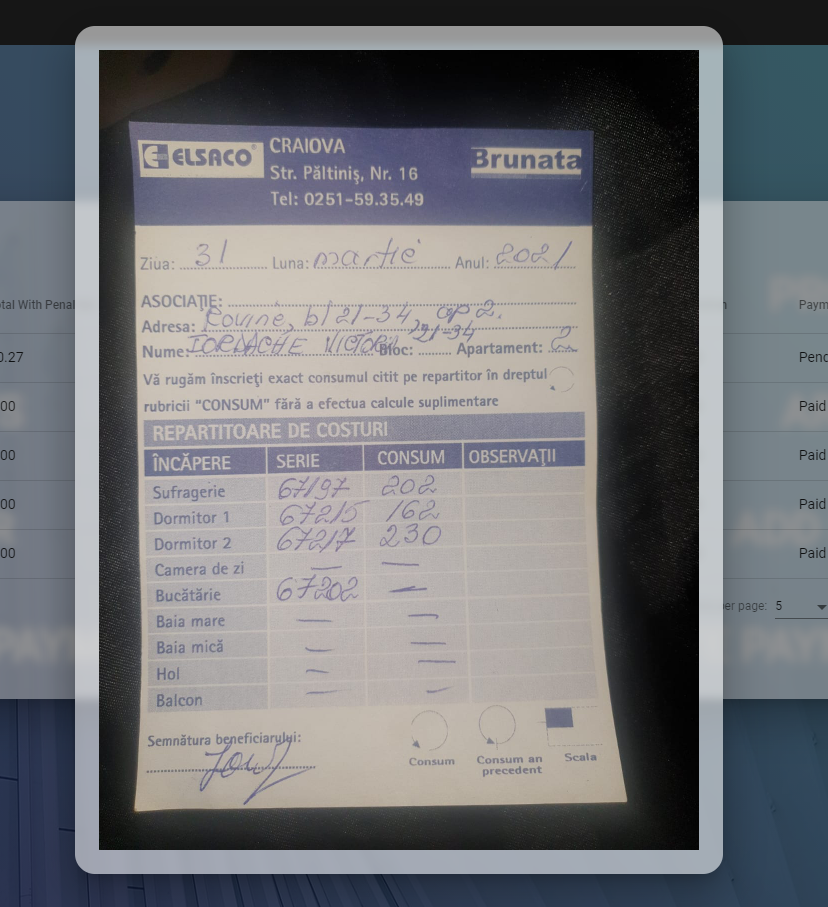 ELSACO
CRAIOVA
Str. Păltiniş, Nr. 16
Tel: 0251-59.35.49
Brunata
Ziua: 31 Luna: martie Anul: 2021
ASOCIAŢIE:
Adresa: Rovine, bl 21-34, ap 2.
Nume: IORDACHE VICTORIA Bloc: 21-34 Apartament: 2
Vă rugăm înscrieţi exact consumul citit pe repartitor în dreptul
rubricii “CONSUM” fără a efectua calcule suplimentare
REPARTITOARE DE COSTURI
ÎNCĂPERE SERIE CONSUM OBSERVAŢII
Sufragerie 67197 202
Dormitor 1 67215 162
Dormitor 2 67217 230
Camera de zi — —
Bucătărie 67202 —
Baia mare — —
Baia mică — —
Hol — —
Balcon — —
Semnătura beneficiarului:
Consum
Consum an
precedent
Scala
otal With Penal
0.27
00
00
00
00
Paym
Pend
Paid
Paid
Paid
Paid
er page: 5